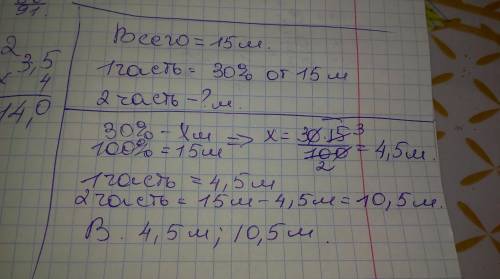 91.
2
3,5
× 4
14,0
Всего = 15 м.
1 часть = 30% от 15 м
2 часть - ? м.
30% - х м
100% = 15 м
=> х = 30·15 3 / 100 2 = 4,5 м.
1 часть = 4,5 м
2 часть = 15 м - 4,5 м = 10,5 м.
В. 4,5 м; 10,5 м.